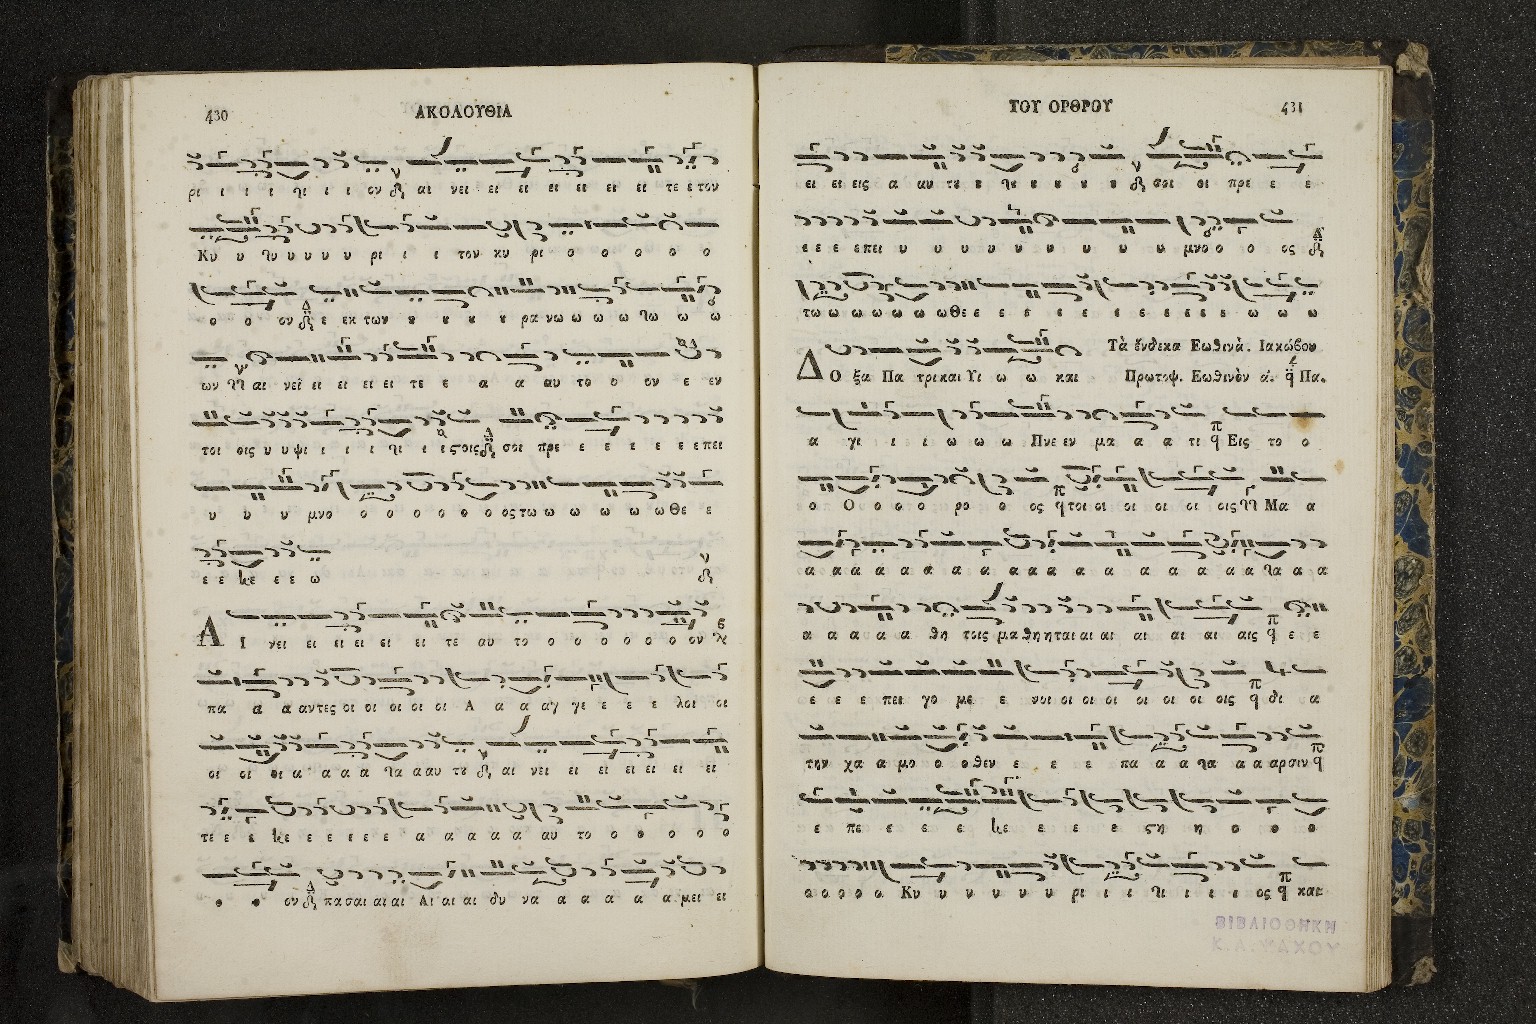 430 ΑΚΟΛΟΥΘΙΑ
ρι ι ι ι ηι ι ι ον αι νει ει ει ει ει ει ει τε ε τον
Κυ υ ηυ υ υ υ υ ρι ι ι τον κυ ρι ο ο ο ο ο
ο ο ον ε εκ των ȣ ȣ ȣ ȣ ρα νω ω ω ω ηω ω ω
ων αι νει ει ει ει ει τε ε α α αυ το ο ον ε εν
τοι οις υ υ ψι ι ι ι ηι ι ις οις σοι πρε ε ε ε ε ε ε πει
υ υ υ μνο ο ο ο ο ο ο ος τω ω ω ω ω ω Θε ε
ε ε κε ε ε ω
Α Ι νει ει ει ει ει ει τε αυ το ο ο ο ο ο ο ον
πα α α αντες οι οι οι οι οι Α α α αγ γε ε ε ε λοι οι
οι οι οι α α α α ηα α αυ τȣ αι νει ει ει ει ει ει ει
τε ε ε κε ε ε ε ε α α α α α αυ το ο ο ο ο ο
ο ο ον πασαι αι αι Αι αι αι δυ να α α α α α μει ει
ΤΟΥ ΟΡΘΡΟΥ 431
ει ει εις α αυ τȣ ȣ ηȣ ȣ ȣ ȣ ȣ σοι οι πρε ε ε
ε ε ε επει υ υ υ υ υ υ υ υ υ μνο ο ο ο ος
τω ω ω ω ω ω Θε ε ε ε ε ε ε ε ε ε ω ω ω
Τὰ ἕνδεκα Εωθινὰ. Ιακώβου
Δ Ο ξα Πα τρι και Υι ω ω και Πρωτοψ. Εωθινὸν ά. ἦ Πα.
α γι ι ι ι ω ω ω Πνε εν μα α α τι Εις το ο
ο Ο ο ο ο ρο ο ος τοι οι οι οι οι οι οις Μα α
α α α α α α α α α α α α α α α α α ηα α α
α α α α α θη τοις μα θη η ται αι αι αι αι αι αις ε ε ε
ε ε ε πει γο με ε νοι οι οι οι οι οι οι οις δι α
την χα α μο ο ο θεν ε ε ε ε πα α α ηα α α αρσιν
ε πε ε ε ε κε ε ε ε ε ςη η ο ο ο
ο ο ο ο ο Κυ υ υ υ υ υ υ ρι ι ι ηι ι ι ι ος και
ΒΙΒΛΙΟΘΗΚΗ
Κ. Α. ΨΑΧΟΥ